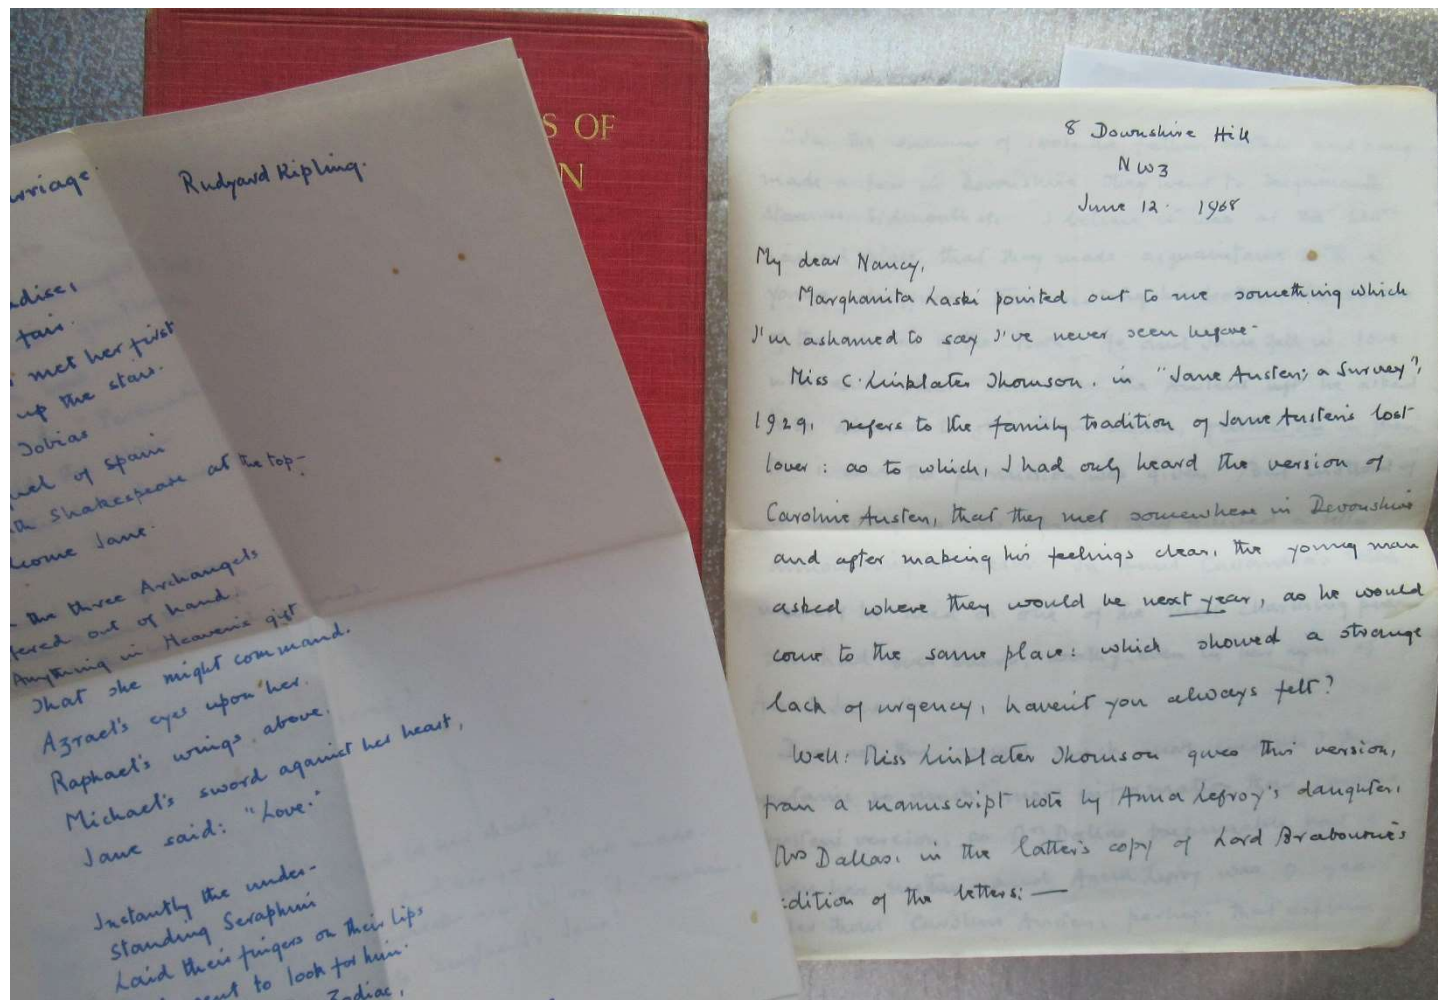 S OF
N
Rudyard Kipling.
rriage.
dise,
fair.
met her first
up the stair.
Tobias
uel of Spain
th Shakespeare at the top—
come Jane.
the three Archangels
fered out of hand.
Anything in Heaven's gift
That she might command.
Azrael's eyes upon her.
Raphael's wings above.
Michael's sword against her heart,
Jane said: "Love."
Instantly the under-
standing Seraphim
Laid their fingers on their lips
to look for him.
Zodiac,
8 Downshire Hill
NW3
June 12. 1968
My dear Nancy,
Marghanita Laski pointed out to me something which
I'm ashamed to say I've never seen before.
Miss C. Linklater Thomson, in "Jane Austen; a Survey",
1929, refers to the family tradition of Jane Austen's lost
lover: as to which, I had only heard the version of
Caroline Austen, that they met somewhere in Devonshire
and after making his feelings clear, the young man
asked where they would be next year, as he would
come to the same place: which showed a strange
lack of urgency, haven't you always felt?
Well: Miss Linklater Thomson gives this version,
from a manuscript note by Anna Lefroy's daughter,
Mrs Dallas, in the latter's copy of Lord Brabourne's
edition of the letters: —